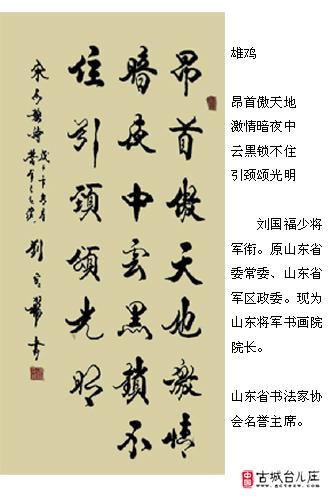 昂首傲天地激情
暗夜中雲黑鎖不
住引頸頌光明
劉國福書
雄鸡
昂首傲天地
激情暗夜中
云黑锁不住
引颈颂光明
刘国福少将
军衔。原山东省
委常委、山东省
军区政委。现为
山东将军书画院
院长。
山东省书法家协
会名誉主席。
古城台儿庄